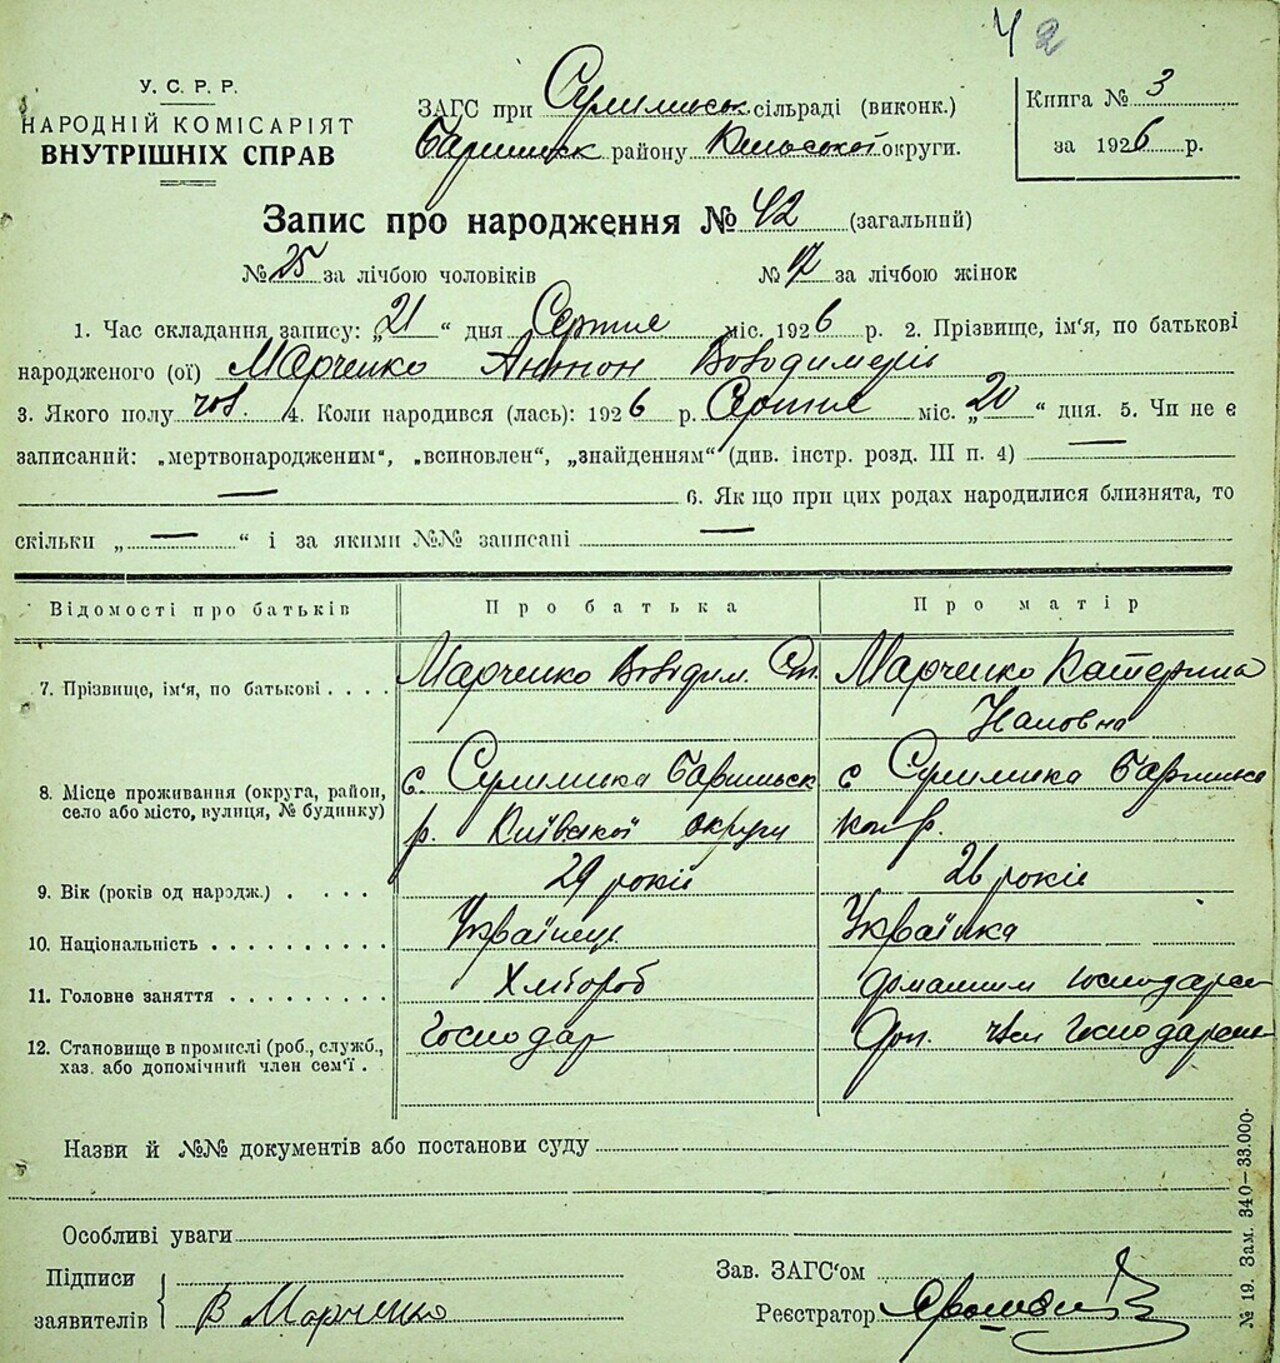 42
У. С. Р. Р.
НАРОДНІЙ КОМІСАРІЯТ
ВНУТРІШНІХ СПРАВ
ЗАГС при Сулимівськ сільраді (виконк.)
Баришівськ району Київської округи.
Книга № 3
за 1926 р.
Запис про народження № 42 (загальний)
№ 25 за лічбою чоловіків № 17 за лічбою жінок
1. Час складання запису: „21“ дня Серпня міс. 1926 р. 2. Прізвище, ім'я, по батькові
народженого (ої) Марченко Антон Володимерів
3. Якого полу чол. 4. Коли народився (лась): 1926 р. Серпня міс. „20“ дня. 5. Чи не є
записаний: „мертвонародженим“, „всиновлен“, „знайденням“ (див. інстр. розд. III п. 4) —
— 6. Якщо при цих родах народилися близнята, то
скільки „ — “ і за якими №№ записані —
Відомості про батьків Про батька Про матір
7. Прізвище, ім'я, по батькові . . . . Марченко Володим. Марченко Катерина
8. Місце проживання (округа, район, село або місто, вулиця, № будинку) с. Сулимівка Баришівськ с Сулимівка
р. Київської округи
9. Вік (років од народж.) . . . . 29 років 26 років
10. Національність . . . . . . . . . . Українець Українка
11. Головне заняття . . . . . . . . . Хлібороб домашнім господарст
12. Становище в промислі (роб., служб., хаз. або допомічний член сем'ї . Господар Доп. член Господарства
Назви й №№ документів або постанови суду
Особливі уваги
Підписи
заявителів В Марченко
Зав. ЗАГС'ом
Реєстратор
№ 19. Зам. 340—33.000.